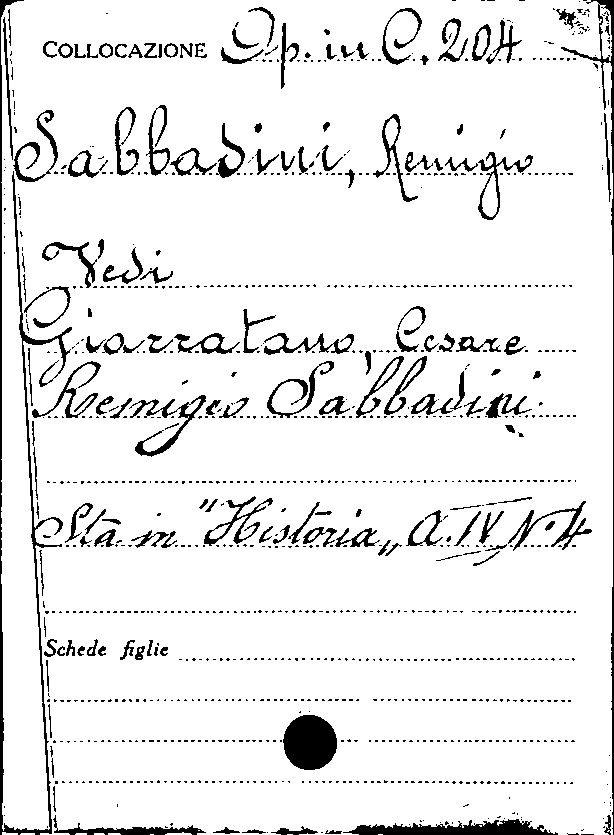 COLLOCAZIONE Op. in C. 204
Sabbadini, Remigio
Vedi
Giarratano, Cesare
Remigio Sabbadini.
Sta in "Historia„ A. IV N. 4
Schede figlie